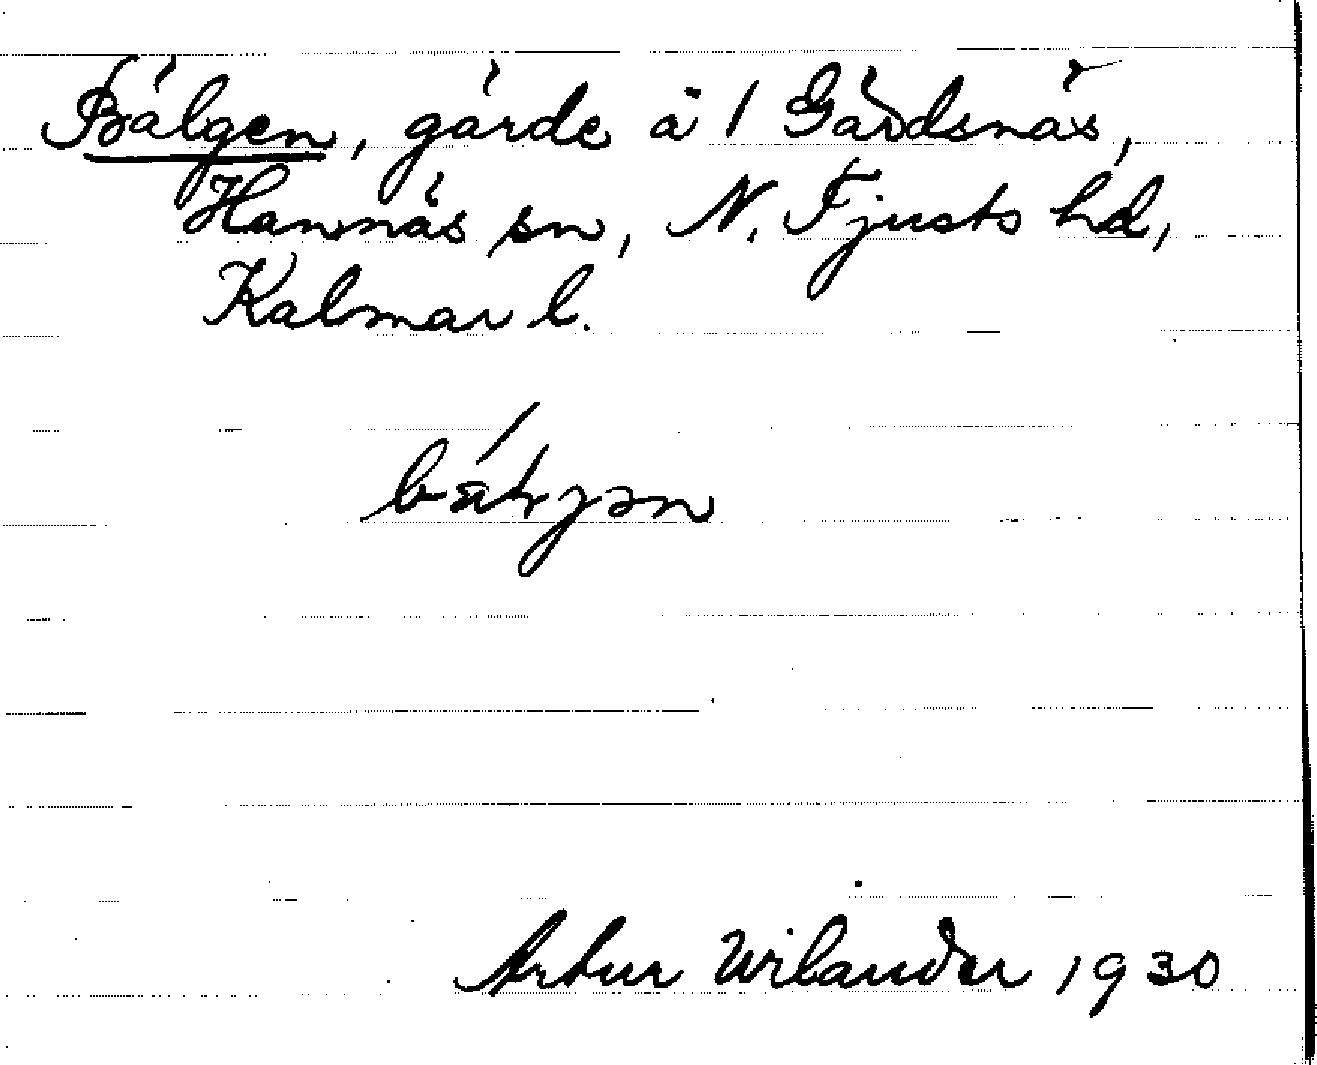 Bälgen, gärde å 1 Gärdsnäs,
Hannäs sn, N. Tjusts hd,
Kalmar l.
Artur Wilander 1930